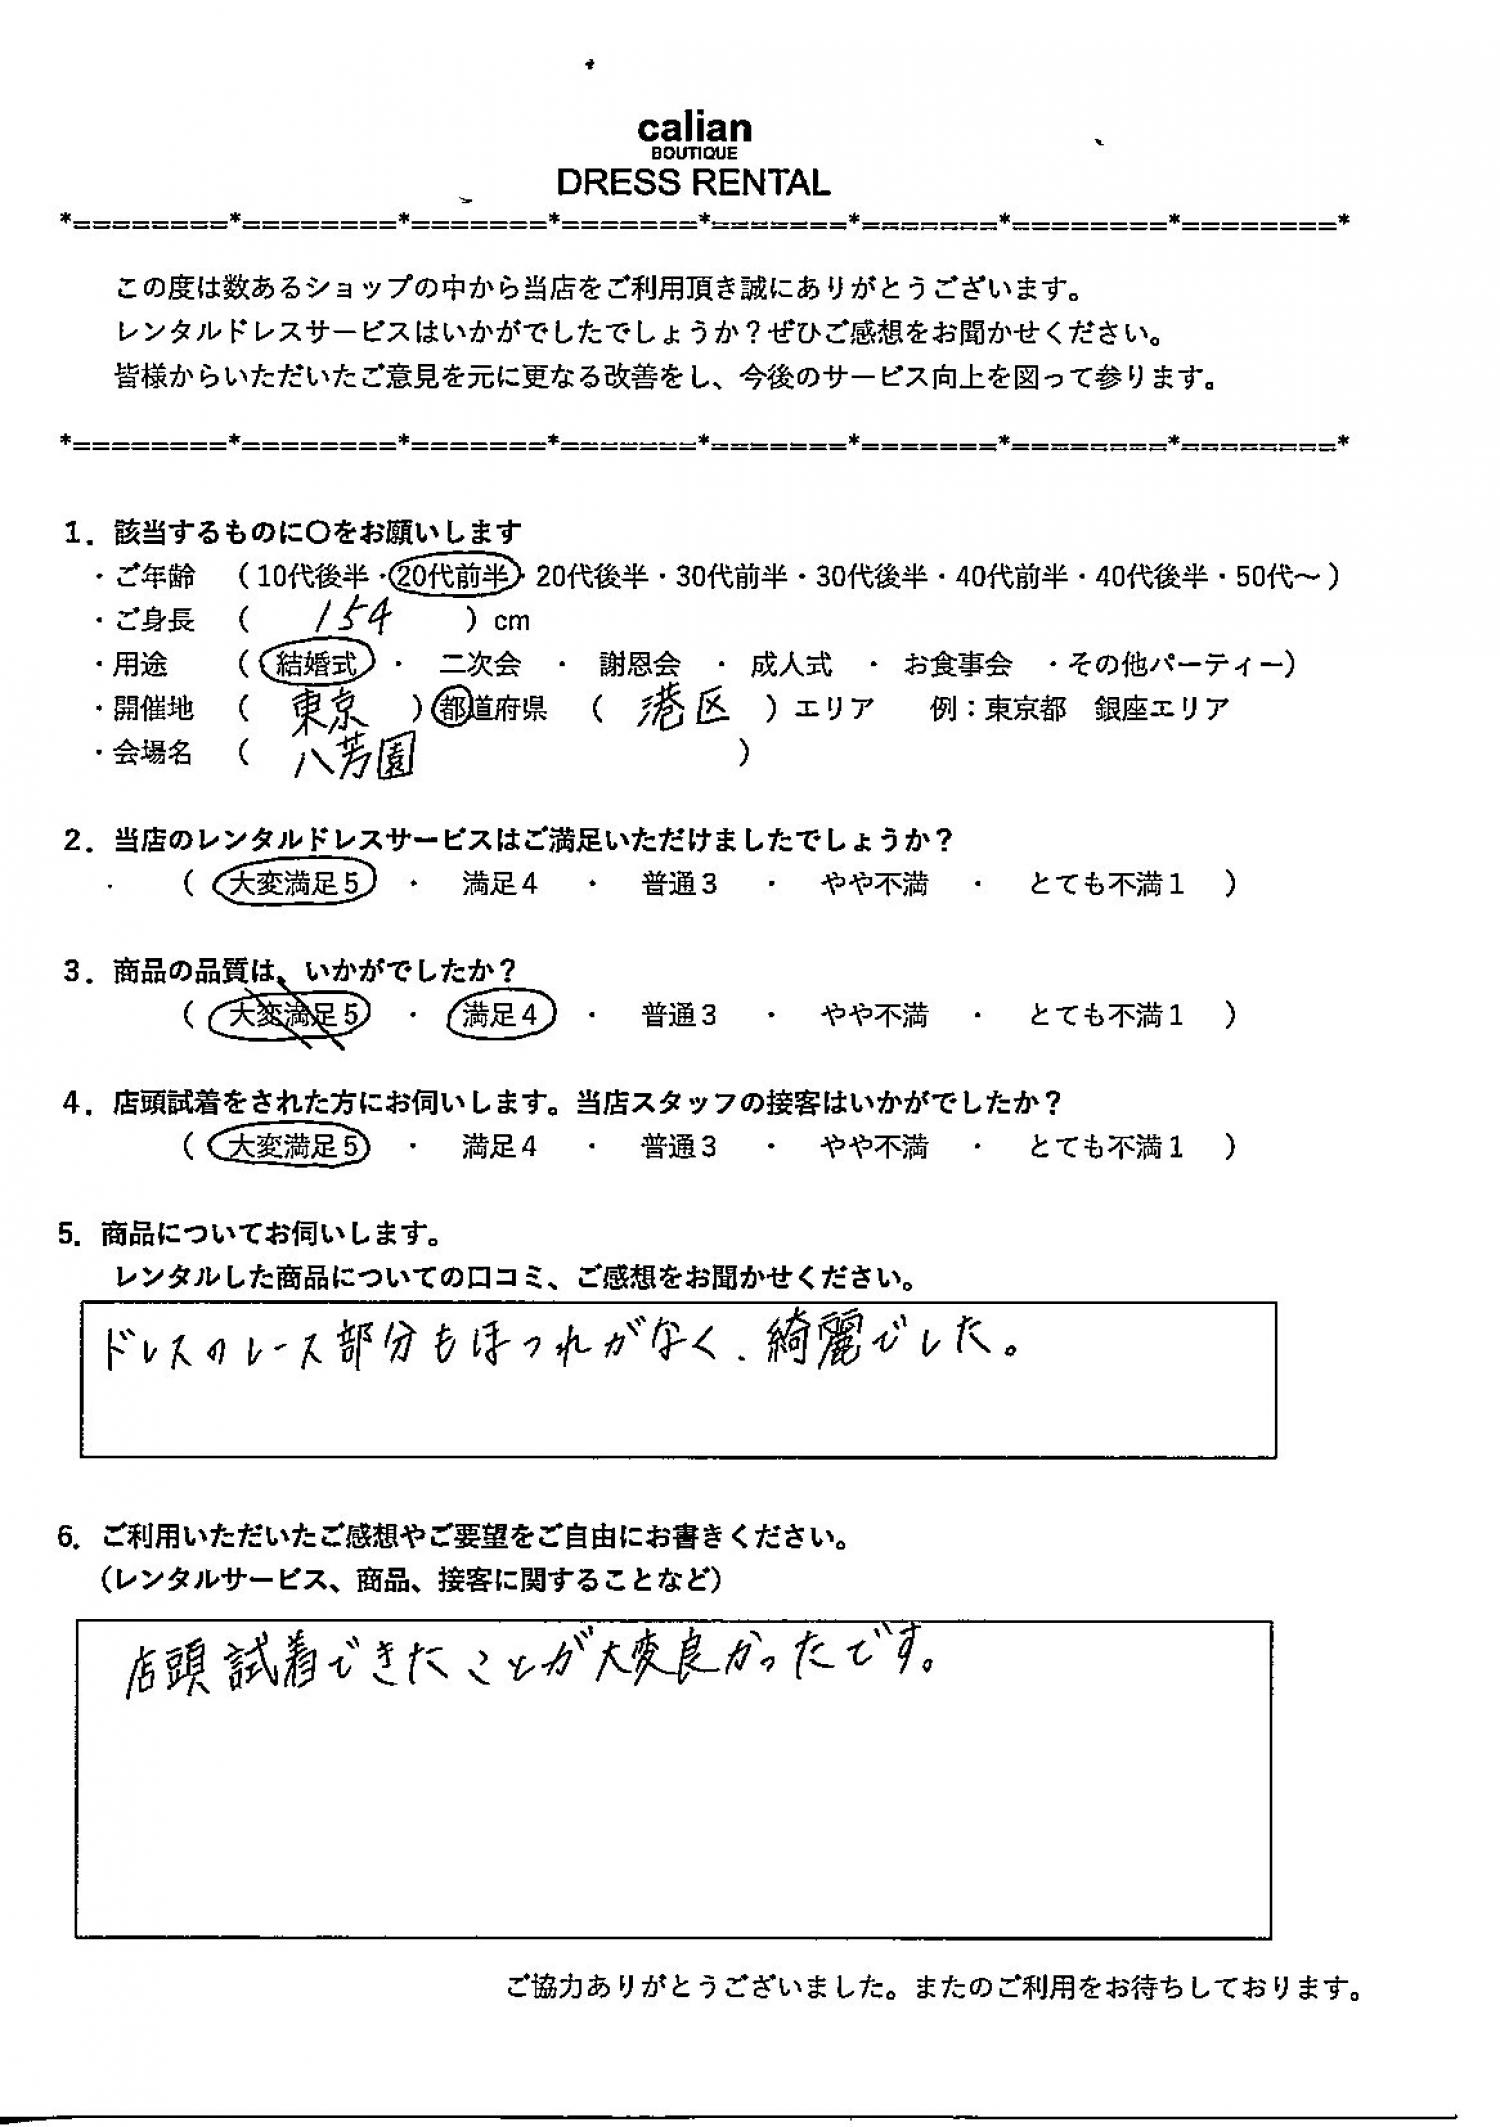 calian
BOUTIQUE
DRESS RENTAL
*========*========*=======*=======*=======*=======*========*========*
この度は数あるショップの中から当店をご利用頂き誠にありがとうございます。
レンタルドレスサービスはいかがでしたでしょうか？ぜひご感想をお聞かせください。
皆様からいただいたご意見を元に更なる改善をし、今後のサービス向上を図って参ります。
*========*========*=======*=======*=======*=======*========*========*
1．該当するものに〇をお願いします
・ご年齢 （10代後半・20代前半・20代後半・30代前半・30代後半・40代前半・40代後半・50代～）
・ご身長 （ 154 ）cm
・用途 （ 結婚式 ・ 二次会 ・ 謝恩会 ・ 成人式 ・ お食事会 ・その他パーティー）
・開催地 （ 東京 ）都道府県 （ 港区 ）エリア 例：東京都 銀座エリア
・会場名 （ 八芳園 ）
2．当店のレンタルドレスサービスはご満足いただけましたでしょうか？
（ 大変満足５ ・ 満足４ ・ 普通３ ・ やや不満 ・ とても不満１ ）
3．商品の品質は、いかがでしたか？
（ 大変満足５ ・ 満足４ ・ 普通３ ・ やや不満 ・ とても不満１ ）
4．店頭試着をされた方にお伺いします。当店スタッフの接客はいかがでしたか？
（ 大変満足５ ・ 満足４ ・ 普通３ ・ やや不満 ・ とても不満１ ）
5．商品についてお伺いします。
レンタルした商品についての口コミ、ご感想をお聞かせください。
ドレスのレース部分もほつれがなく、綺麗でした。
6．ご利用いただいたご感想やご要望をご自由にお書きください。
（レンタルサービス、商品、接客に関することなど）
店頭試着できたことが大変良かったです。
ご協力ありがとうございました。またのご利用をお待ちしております。